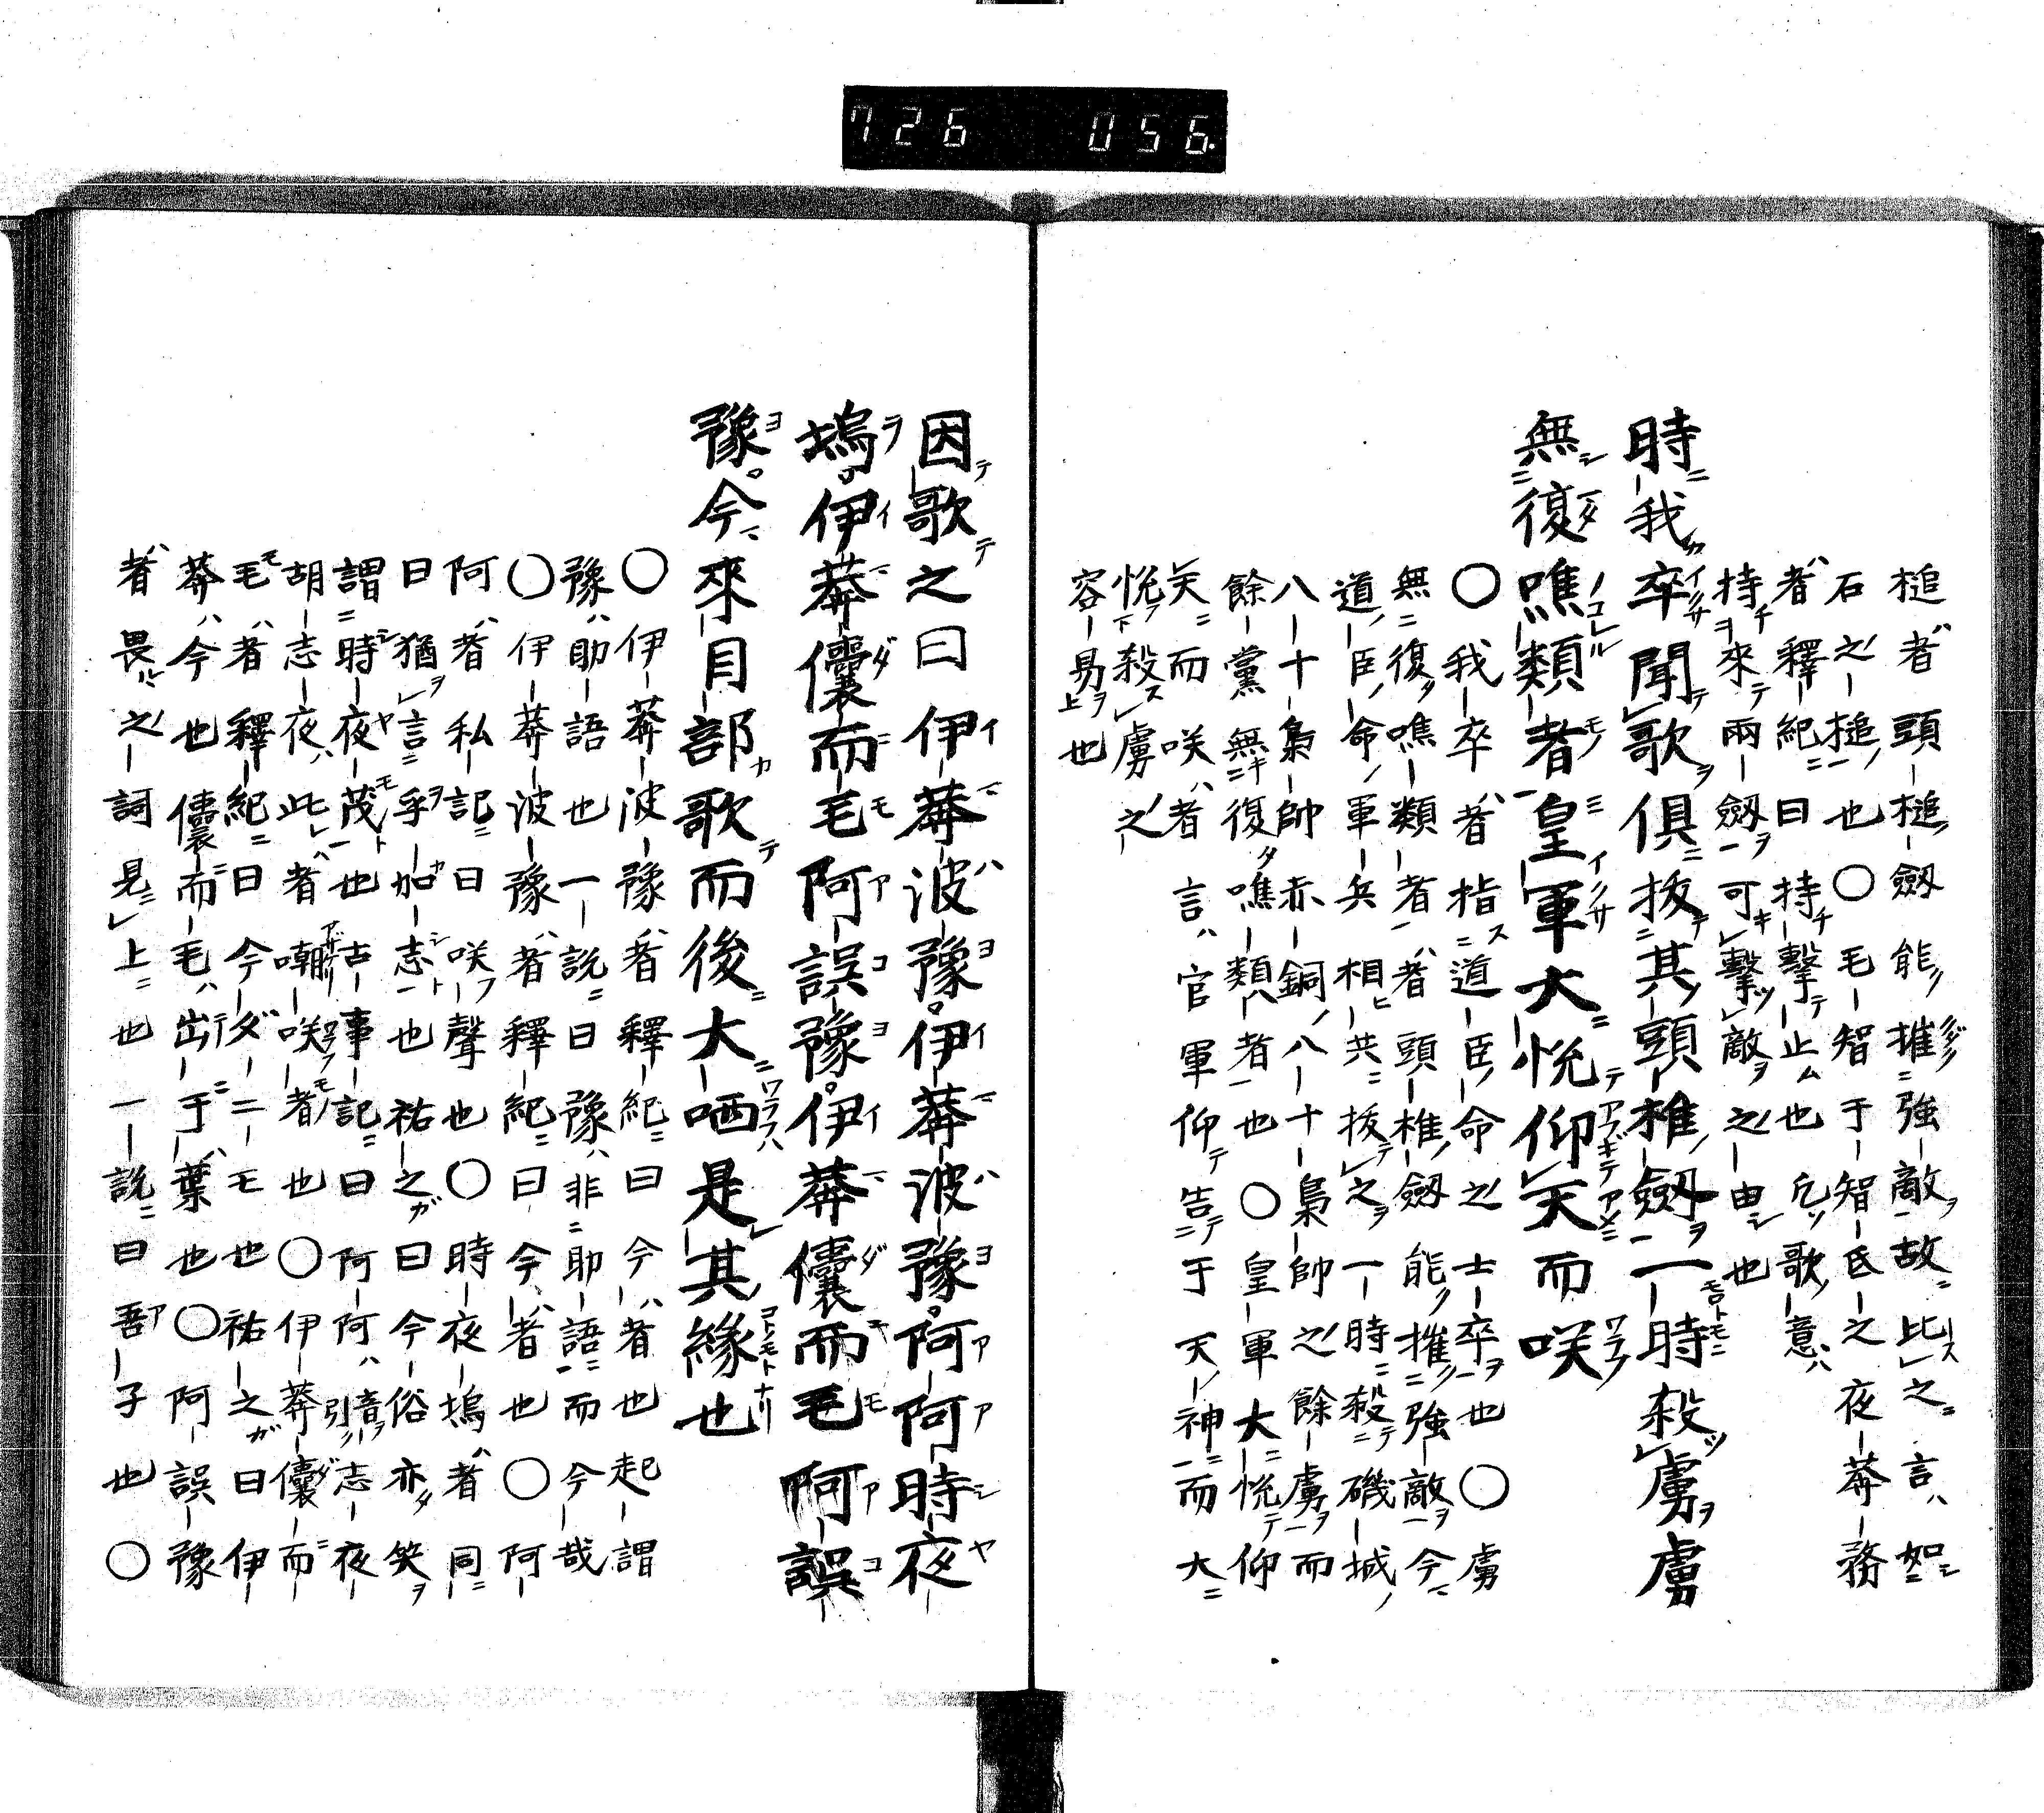 726 056.
槌者頭槌劔能摧強敵故比之言如
石之槌也〇毛智于智氐之夜莾務
者釋紀曰持擊止也乞歌意
持來兩劔可擊敵之由也
時我卒聞歌俱拔其頭椎劔一時殺虜虜
無復噍類者皇軍大悅仰天而咲
〇我卒者指道臣命之士卒也〇虜
無復噍類者者頭椎劔能摧強敵今
道臣命軍兵相共拔之一時殺磯城
八十梟帥赤銅八十梟帥之餘虜而
餘黨無復噍類者也〇皇軍大悅仰
天而咲者言官軍仰告于天神而大
悅殺虜之
容易也
因歌之曰伊莾波豫伊莾波豫阿阿時夜
塢伊莾儾而毛阿誤豫伊莾儾而毛阿誤
豫今來目部歌而後大哂是其緣也
〇伊莾波豫者釋紀曰今者也起謂
豫助語也一說曰豫非助語而今哉
〇伊莾波豫者釋紀曰今者也〇阿
阿者私記曰咲聲也〇時夜塢者同
曰猶言乎加志也祐之曰今俗亦笑
謂時夜茂也古事記曰阿阿音引志夜
胡志夜此者嘲咲者也〇伊莾儾而
毛者釋紀曰今ダニモ也祐之曰伊
莾今也儾而毛出于葉也〇阿誤豫
者畏之詞見上也一說曰吾子也〇